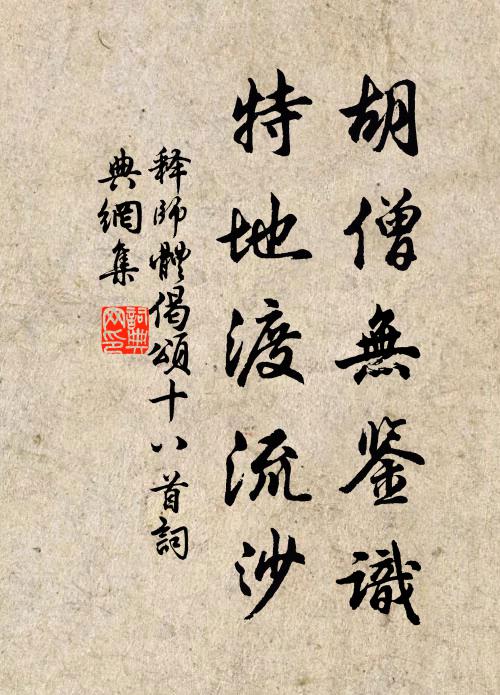 胡僧無鉴識
特地渡流沙
释師體偈頌十八首詞
典網集
詞典
网印